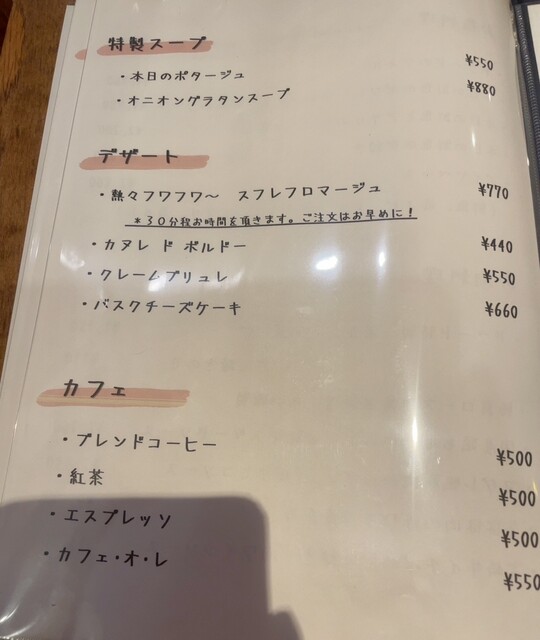 特製スープ
・本日のポタージュ ¥550
・オニオングラタンスープ ¥880
デザート
・熱々フワフワ〜 スフレフロマージュ ¥770
*30分程お時間を頂きます。ご注文はお早めに!
・カヌレ ド ボルドー ¥440
・クレームブリュレ ¥550
・バスクチーズケーキ ¥660
カフェ
・ブレンドコーヒー ¥500
・紅茶 ¥500
・エスプレッソ ¥500
・カフェ・オ・レ ¥550